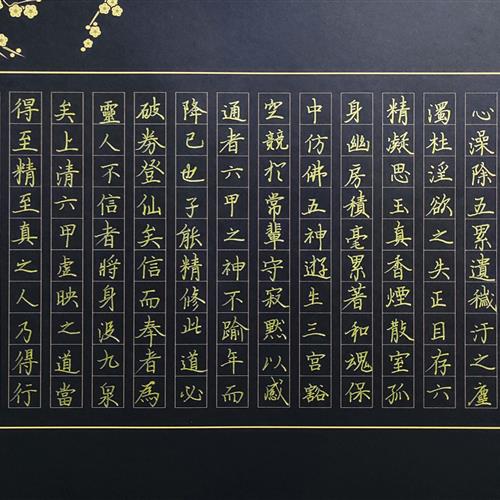 心澡除五累遺穢汙之塵
濁杜淫欲之失正目存六
精凝思玉真香煙散室孤
身幽房積毫累著和魂保
中仿佛五神遊生三宮豁
空競於常輩守寂默以感
通者六甲之神不踰年而
降已也子能精修此道必
破券登仙矣信而奉者為
靈人不信者將身沒九泉
矣上清六甲虛映之道當
得至精至真之人乃得行